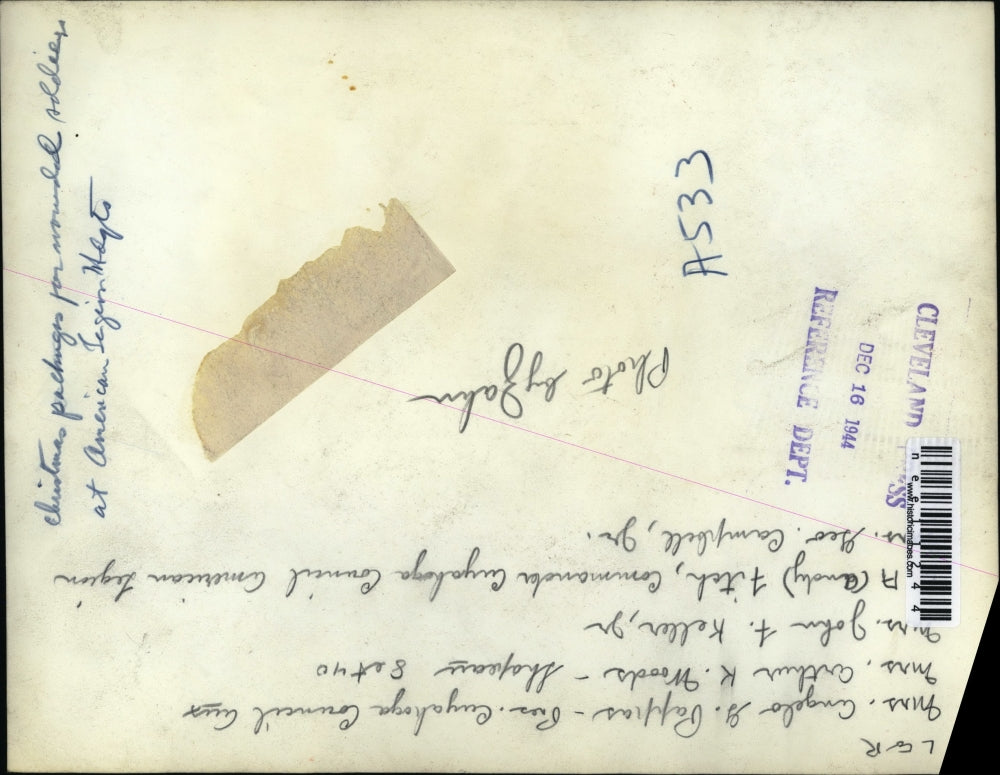 Christmas packages for wounded soldiers
at American Legion Hdqts
A533
CLEVELAND
DEC 16 1944
REFERENCE DEPT.
Photo by Zahn
L to R
Mrs. Angelo G. Pappas - Pres. Cuyahoga Council Aux
Mrs. Arthur K. Woods - Chapeau 8 et 40
Mrs. John F. Keller, Jr
A (Andy) Fitch, Commander Cuyahoga Council American Legion
Geo. Campbell, Jr.
www.historicimages.com